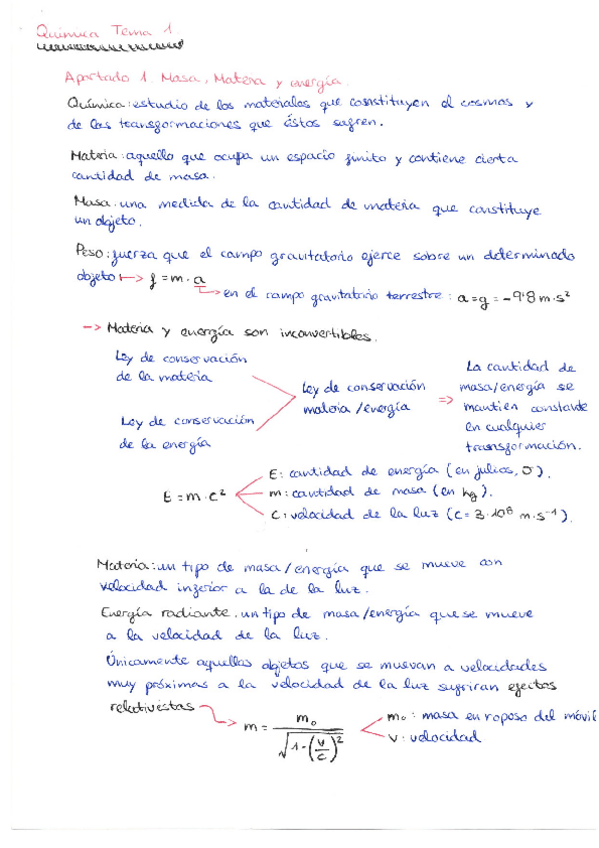 Química Tema 1.
Apartado 1. Masa, Materia y energía.
Química: estudio de los materiales que constituyen el cosmos y
de las transformaciones que éstos sufren.
Materia: aquello que ocupa un espacio finito y contiene cierta
cantidad de masa.
Masa: una medida de la cantidad de materia que constituye
un objeto.
Peso: fuerza que el campo gravitatorio ejerce sobre un determinado
objeto → f = m · a
→ en el campo gravitatorio terrestre: a = g = -9'8 m·s²
-> Materia y energía son inconvertibles.
Ley de conservación
de la materia
Ley de conservación
de la energía
Ley de conservación
materia/energía
=>
La cantidad de
masa/energía se
mantien constante
en cualquier
transformación.
E = m · c²
E: cantidad de energía (en julios, J).
m: cantidad de masa (en kg).
C: velocidad de la luz (c = 3·10⁸ m·s⁻¹).
Materia: un tipo de masa/energía que se mueve con
velocidad inferior a la de la luz.
Energía radiante: un tipo de masa/energía que se mueve
a la velocidad de la luz.
Únicamente aquellos objetos que se muevan a velocidades
muy próximas a la velocidad de la luz sufriran efectos
relativistas → m = m₀ / √(1-(v/c)²)
m₀: masa en reposo del móvil
v: velocidad